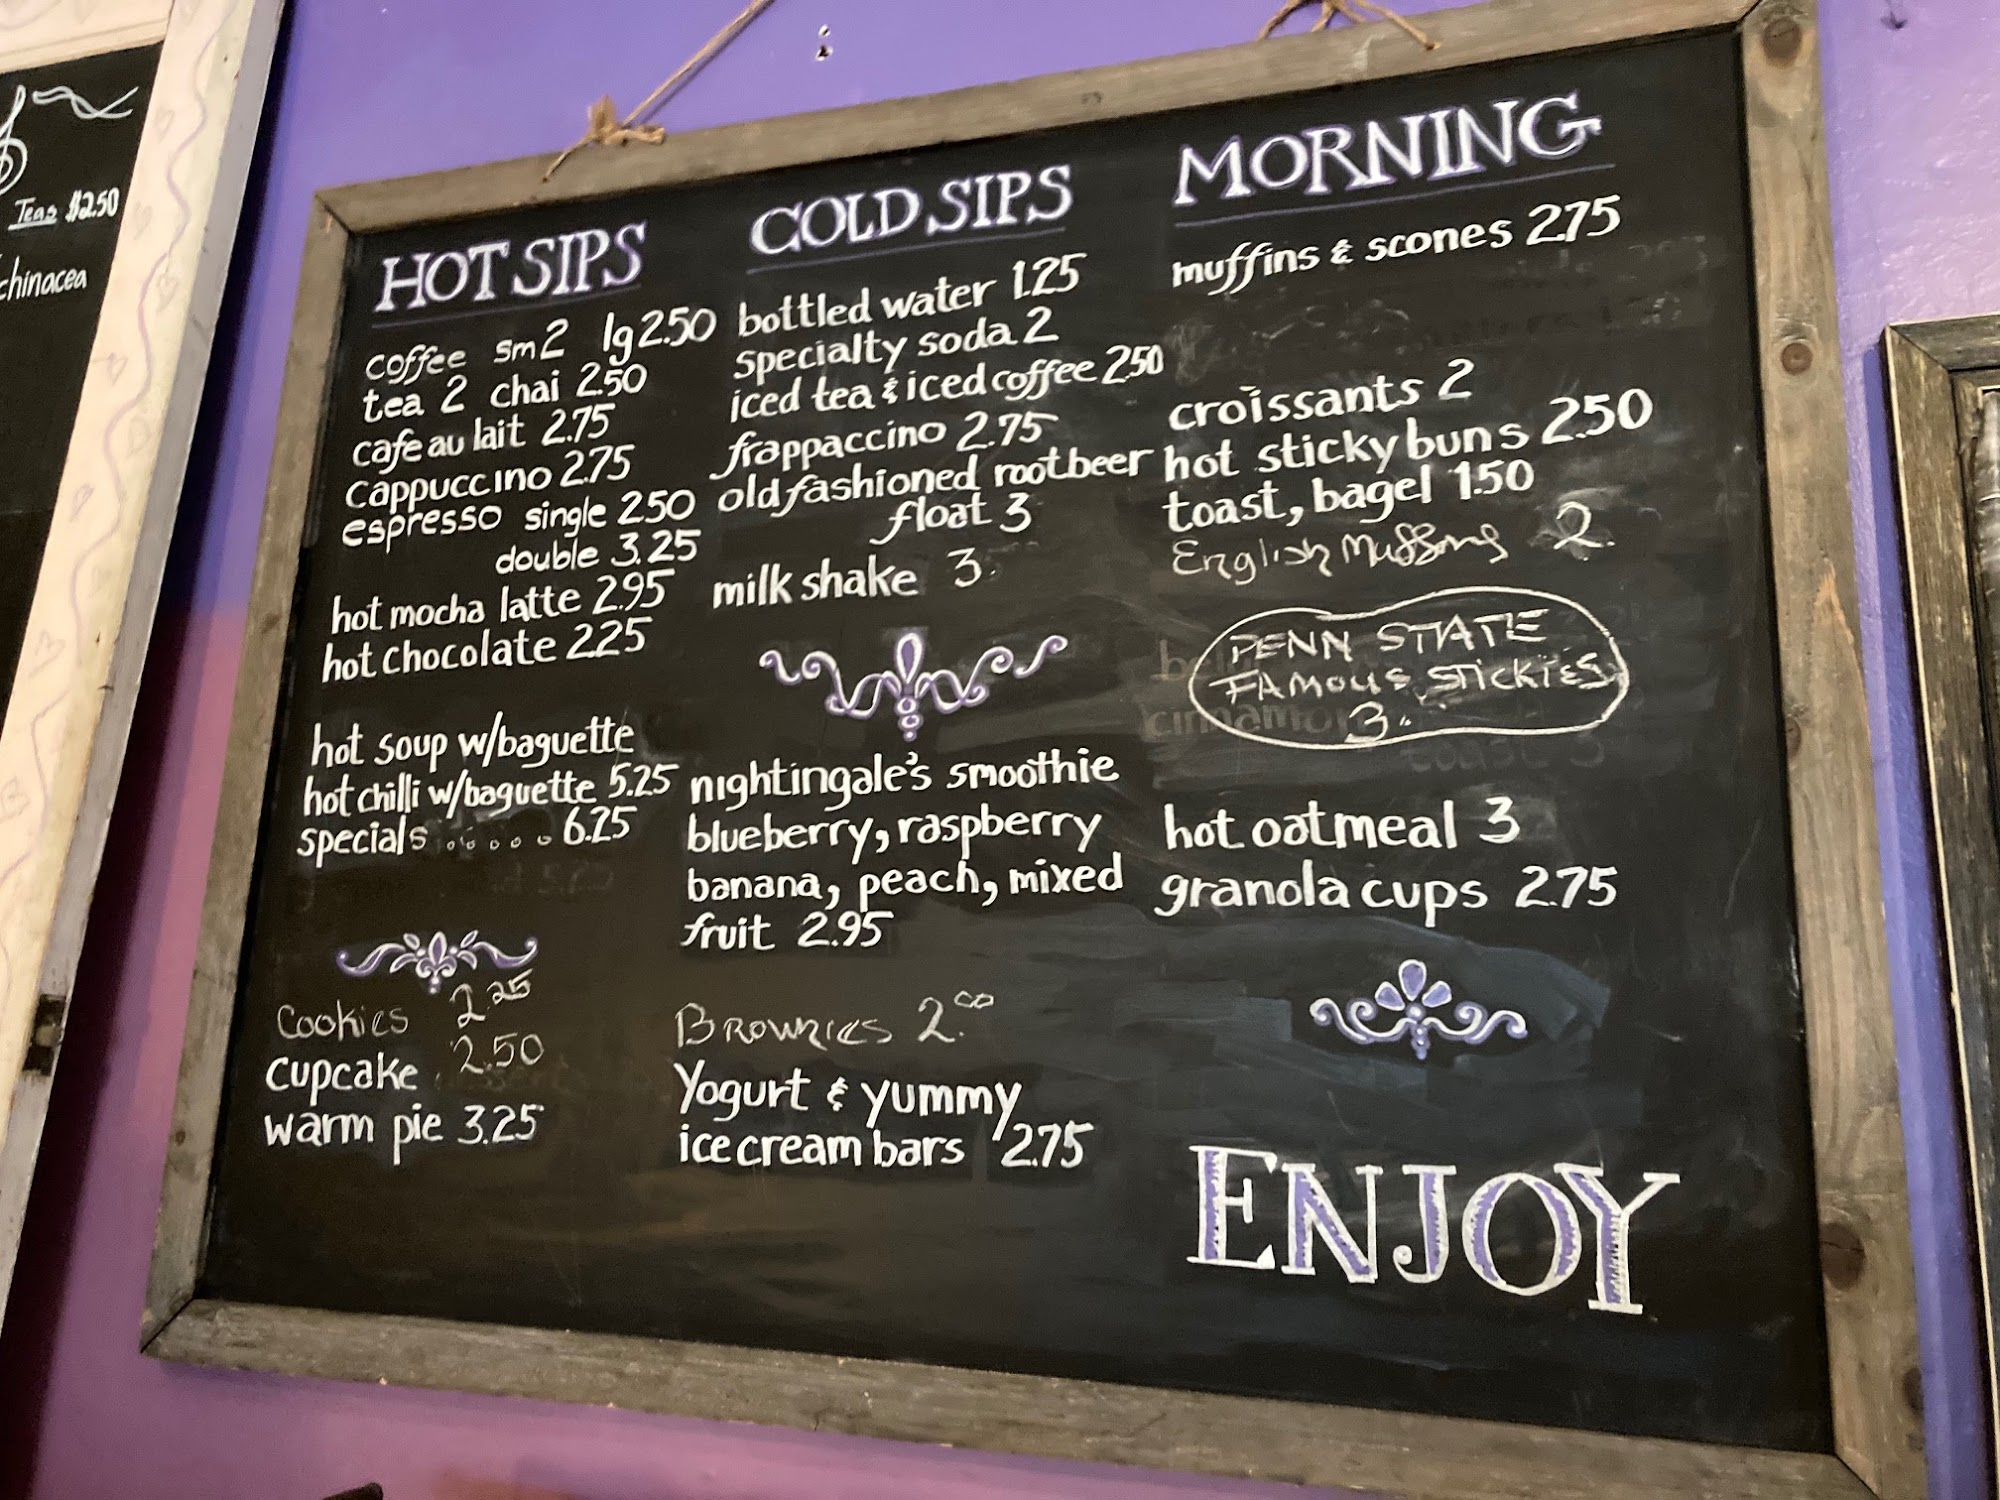 Teas $2.50
chinacea
HOT SIPS
coffee sm 2 lg 2.50
tea 2 chai 2.50
cafe au lait 2.75
cappuccino 2.75
espresso single 2.50
double 3.25
hot mocha latte 2.95
hot chocolate 2.25
hot soup w/baguette
hot chilli w/baguette 5.25
specials . . . . . . 6.25
Cookies 2.25
cupcake 2.50
warm pie 3.25
COLD SIPS
bottled water 1.25
specialty soda 2
iced tea & iced coffee 2.50
frappaccino 2.75
old fashioned rootbeer
float 3
milk shake 3.
nightingale's smoothie
blueberry, raspberry
banana, peach, mixed
fruit 2.95
BROWNIES 2.00
Yogurt & yummy
ice cream bars 2.75
MORNING
muffins & scones 2.75
croissants 2
hot sticky buns 2.50
toast, bagel 1.50
English Muffins 2.
PENN STATE
FAMOUS STICKIES
3.
hot oatmeal 3
granola cups 2.75
ENJOY